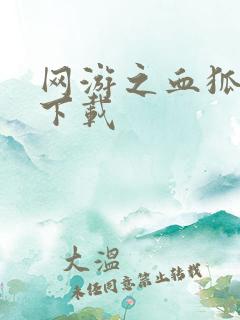 网游之血狐
下载
大温
未经同意禁止转载